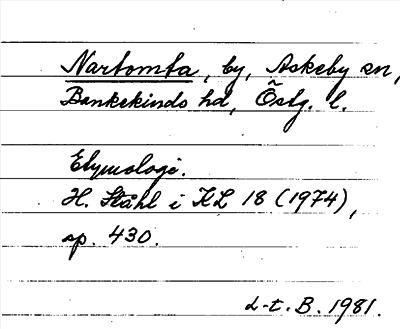 Nartomta, by, Askeby sn,
Bankekinds hd, Östg. l.
Etymologi.
H. Ståhl i KL 18 (1974),
sp. 430.
L-t. B. 1981.